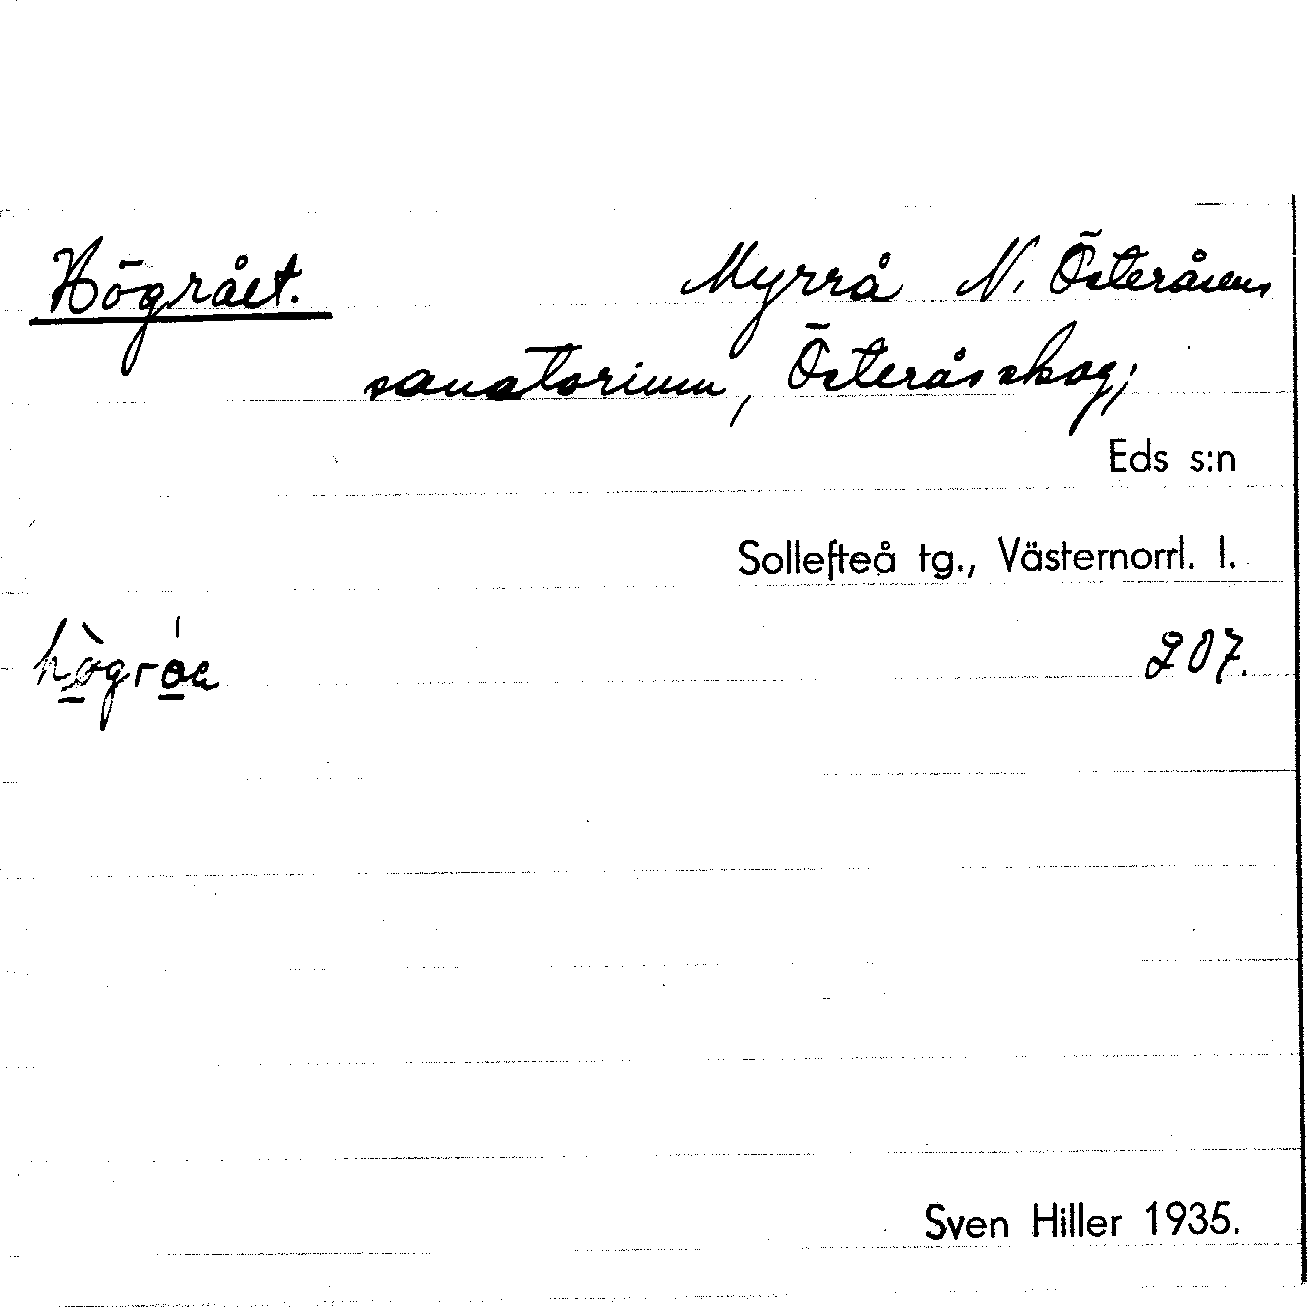 Högrået. Myrrå N. Österåsens
sanatorium, Österåsskog;
Eds s:n
Sollefteå tg., Västernorrl. l.
207.
Sven Hiller 1935.